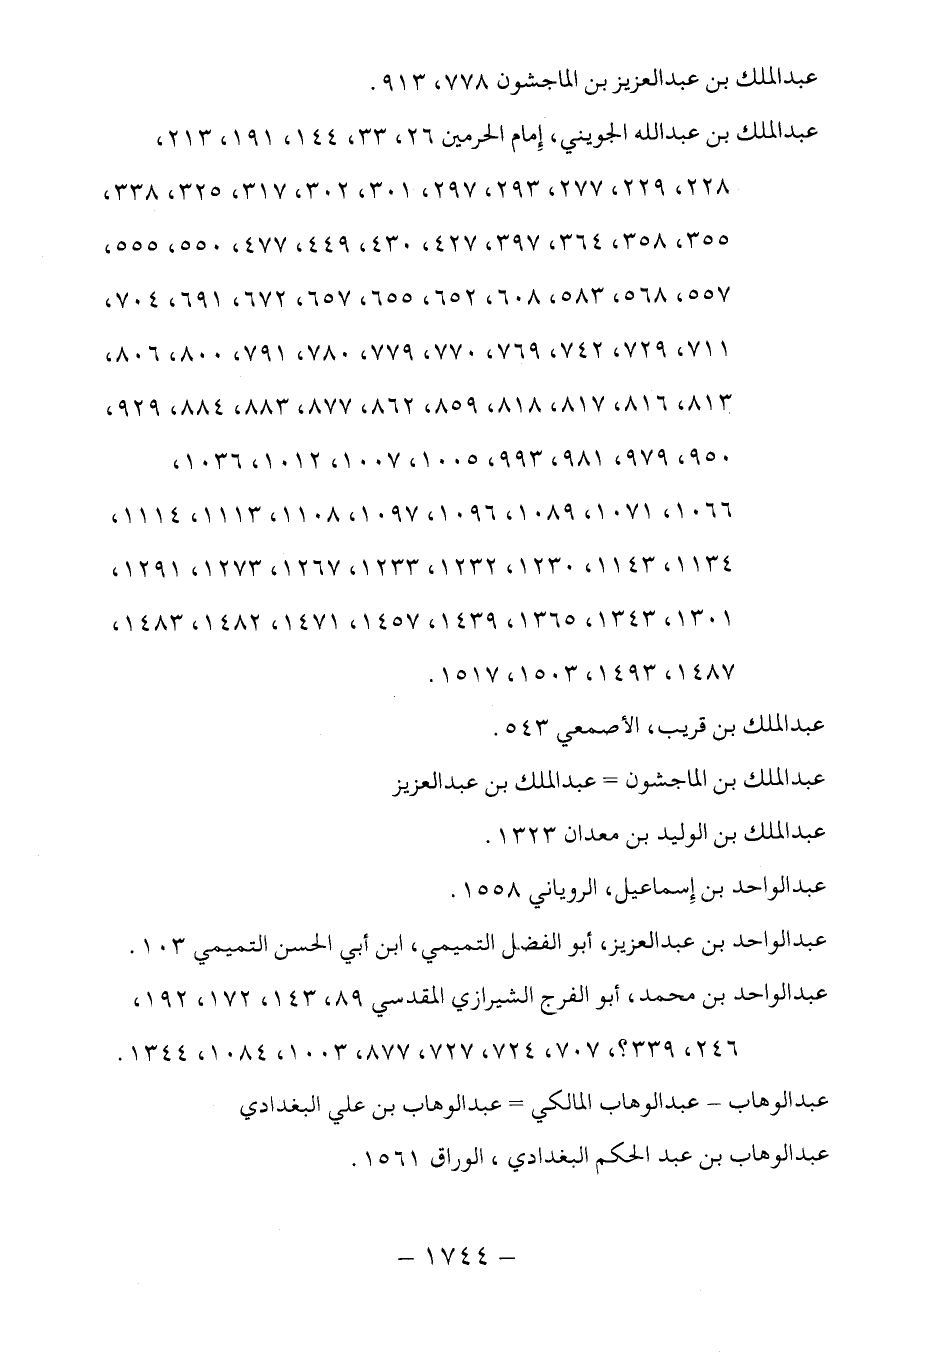 عبدالملك بن عبدالعزيز بن الماجشون ٧٧٨، ٩١٣.
عبدالملك بن عبدالله الجويني، إمام الحرمين ٢٦، ٣٣، ١٤٤، ١٩١، ٢١٣،
٢٢٨، ٢٢٩، ٢٧٧، ٢٩٣، ٢٩٧، ٣٠١، ٣٠٢، ٣١٧، ٣٢٥، ٣٣٨،
٣٥٥، ٣٥٨، ٣٦٤، ٣٩٧، ٤٢٧، ٤٣٠، ٤٤٩، ٤٧٧، ٥٥٠، ٥٥٥،
٥٥٧، ٥٦٨، ٥٨٣، ٦٠٨، ٦٥٢، ٦٥٥، ٦٥٧، ٦٧٢، ٦٩١، ٧٠٤،
٧١١، ٧٢٩، ٧٤٢، ٧٦٩، ٧٧٠، ٧٧٩، ٧٨٠، ٧٩١، ٨٠٠، ٨٠٦،
٨١٣، ٨١٦، ٨١٧، ٨١٨، ٨٥٩، ٨٦٢، ٨٧٧، ٨٨٣، ٨٨٤، ٩٢٩،
٩٥٠، ٩٧٩، ٩٨١، ٩٩٣، ١٠٠٥، ١٠٠٧، ١٠١٢، ١٠٣٦،
١٠٦٦، ١٠٧١، ١٠٨٩، ١٠٩٦، ١٠٩٧، ١١٠٨، ١١١٣، ١١١٤،
١١٣٤، ١١٤٣، ١٢٣٠، ١٢٣٢، ١٢٣٣، ١٢٦٧، ١٢٧٣، ١٢٩١،
١٣٠١، ١٣٤٣، ١٣٦٥، ١٤٣٩، ١٤٥٧، ١٤٧١، ١٤٨٢، ١٤٨٣،
١٤٨٧، ١٤٩٣، ١٥٠٣، ١٥١٧.
عبدالملك بن قريب، الأصمعي ٥٤٣.
عبدالملك بن الماجشون = عبدالملك بن عبدالعزيز
عبدالملك بن الوليد بن معدان ١٣٢٣.
عبدالواحد بن إسماعيل، الروياني ١٥٥٨.
عبدالواحد بن عبدالعزيز، أبو الفضل التميمي، ابن أبي الحسن التميمي ١٠٣.
عبدالواحد بن محمد، أبو الفرج الشيرازي المقدسي ٨٩، ١٤٣، ١٧٢، ١٩٢،
٢٤٦، ٣٣٩؟، ٧٠٧، ٧٢٤، ٧٢٧، ٨٧٧، ١٠٠٣، ١٠٨٤، ١٣٤٤.
عبدالوهاب – عبدالوهاب المالكي = عبدالوهاب بن علي البغدادي
عبدالوهاب بن عبد الحكم البغدادي ، الوراق ١٥٦١.
– ١٧٤٤ –